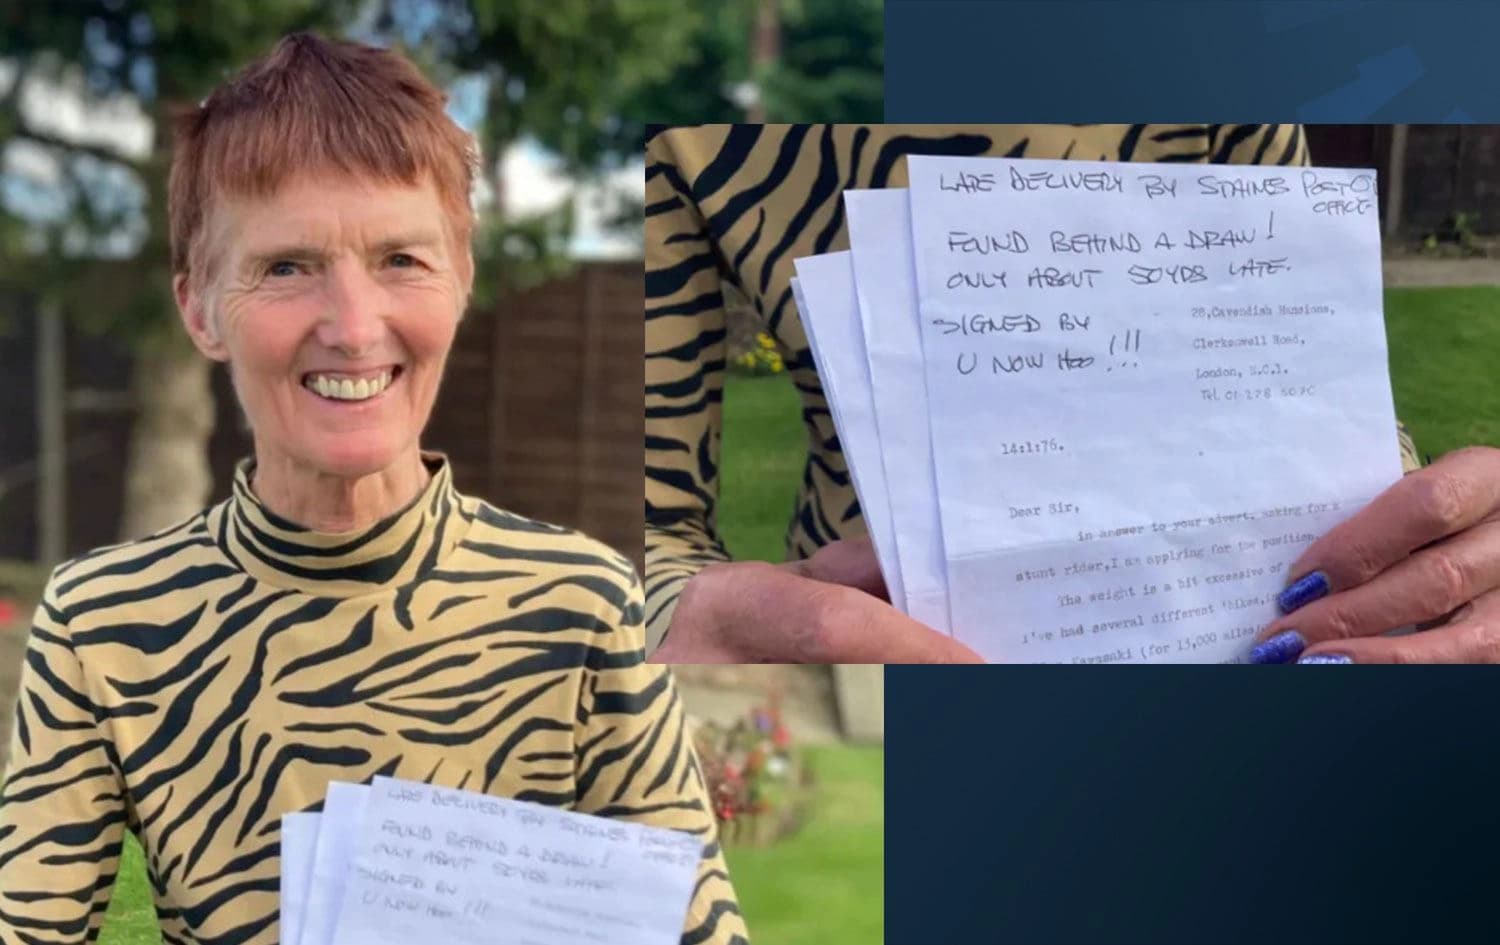 LATE DELIVERY BY STAINES POST
OFFICE
FOUND BEHIND A DRAW!
ONLY ABOUT 50YRS LATE.
SIGNED BY
U NOW HOO !!!
28,Cavendish Mansions,
Clerkenwell Road,
London, E.C.1.
Tel. 01 278
14:1:76.
Dear Sir,
in answer to your advert. asking for a
stunt rider,I am applying for the position.
The weight is a bit excessive of
I've had several different 'bikes,
Kawasaki (for 15,000 miles
LATE DELIVERY BY STAINES
OFFICE
FOUND BEHIND A DRAW!
ONLY ABOUT 50YRS LATE.
SIGNED BY
U NOW HOO !!!